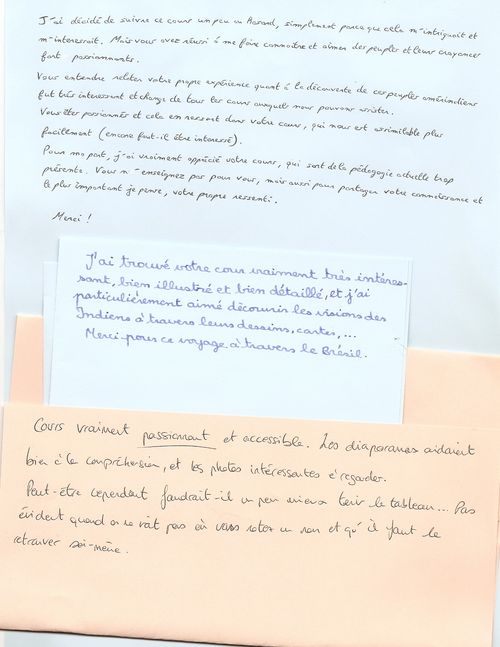 J'ai décidé de suivre ce cours un peu au hasard, simplement parce que cela m'intriguait et
m'intéressait. Mais vous avez réussi à me faire connaître et aimer des peuples et leurs croyances
fort passionnants.
Vous entendre relater votre propre expérience quant à la découverte de ces peuples amérindiens
fut très intéressant et change de tous les cours auxquels nous pouvons assister.
Vous êtes passionnés et cela en ressort dans votre cours, qui nous est assimilable plus
facilement (encore faut-il être intéressé).
Pour ma part, j'ai vraiment apprécié votre cours, qui sort de la pédagogie actuelle trop
présente. Vous n'enseignez pas pour vous, mais aussi pour partager votre connaissance et
le plus important je pense, votre propre ressenti.
Merci !
J'ai trouvé votre cours vraiment très intéres-
sant, bien illustré et bien détaillé, et j'ai
particulièrement aimé découvrir les visions des
Indiens à travers leurs dessins, cartes, ...
Merci pour ce voyage à travers le Brésil.
Cours vraiment passionnant et accessible. Les diaporamas aidaient
bien à la compréhension, et les photos intéressantes à regarder.
Peut-être cependant faudrait-il un peu mieux tenir le tableau... Pas
évident quand on ne voit pas où vous notez un nom et qu'il faut le
retrouver soi-même.